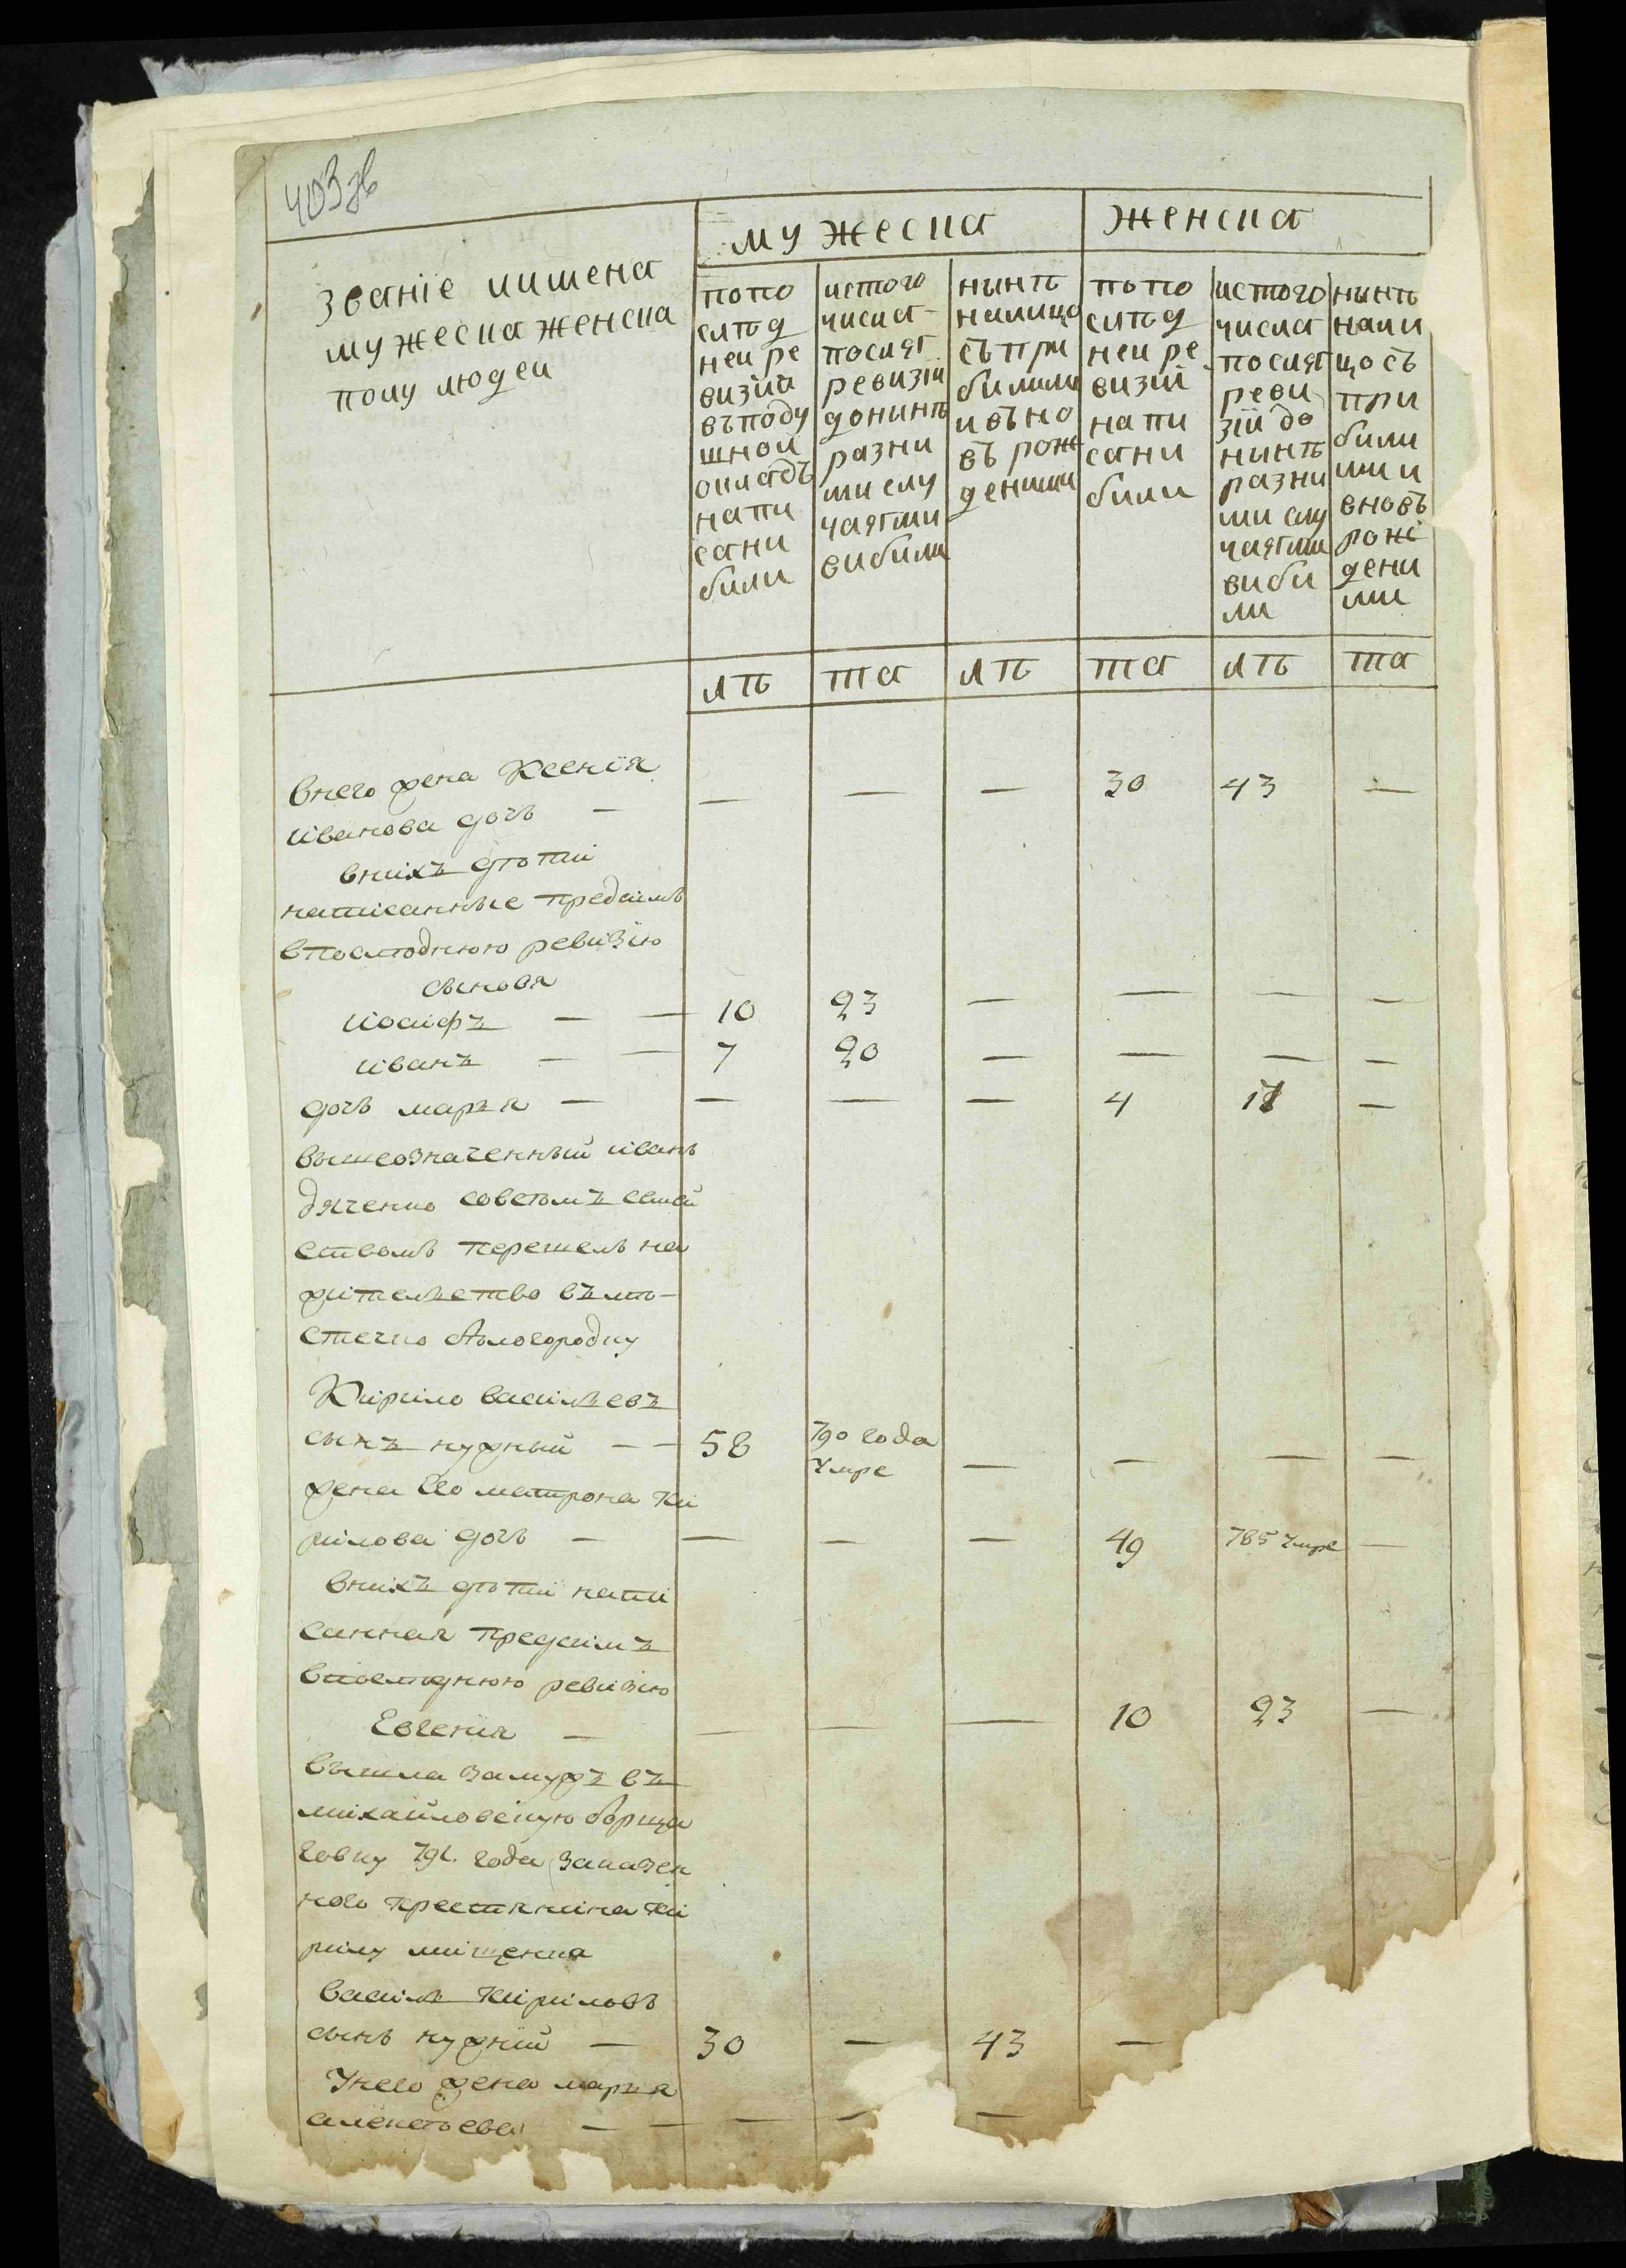 403зв
мужеска
женска
званіе иимена
мужеска женска
полу людеи
попо
слѣд
неи ре
визіи
въподу
шнои
окладъ
напи
сани
били
истого
числа
послѣ
ревизіи
донынѣ
разни
ми слу
чаями
вибили
нынѣ
налицо
съ при
билими
ивъно
въ рож
деними
попо
слѣд
неи ре
визіи
напи
сани
били
истого
числа
послѣ
реви
зіи до
нынѣ
разни
ми слу
чаями
виби
ли
нынѣ
нали
цо съ
при
били
ми и
вновъ
рож
дени
ми
лѣ та лѣ та лѣ та
внего жена Ксенія
иванова дочъ — — — — 30 43 —
внихъ дѣти
написанные предаимъ
впослѣднюю ревизію
сыновя
иосифъ — — 10 23 — — — —
иванъ — — 7 20 — — — —
дочъ маръя — — — — 4 17 —
вышеозначенный иванъ
дяченко совсѣмъ семей
ствомъ перешелъ на
жителъство въмѣ-
стечко бѣлогородку
Кирило василъевъ
сынъ нужный — — 58 790 года умре — — — —
жена его матрона ки
рилова дочъ — — — — 49 785 умре —
внихъ дѣти напи
санная предаимъ
впослѣднюю ревизію
Евгенія — — — — 10 23 —
вышла замужъ въ
михайловскую борща
говку 791. года заказен
ного крестянина ки
рилу мищенка
василъ кириловъ
сынъ нужній — 30 — 43 —
Унего жена маръя
алексѣева — — — — —